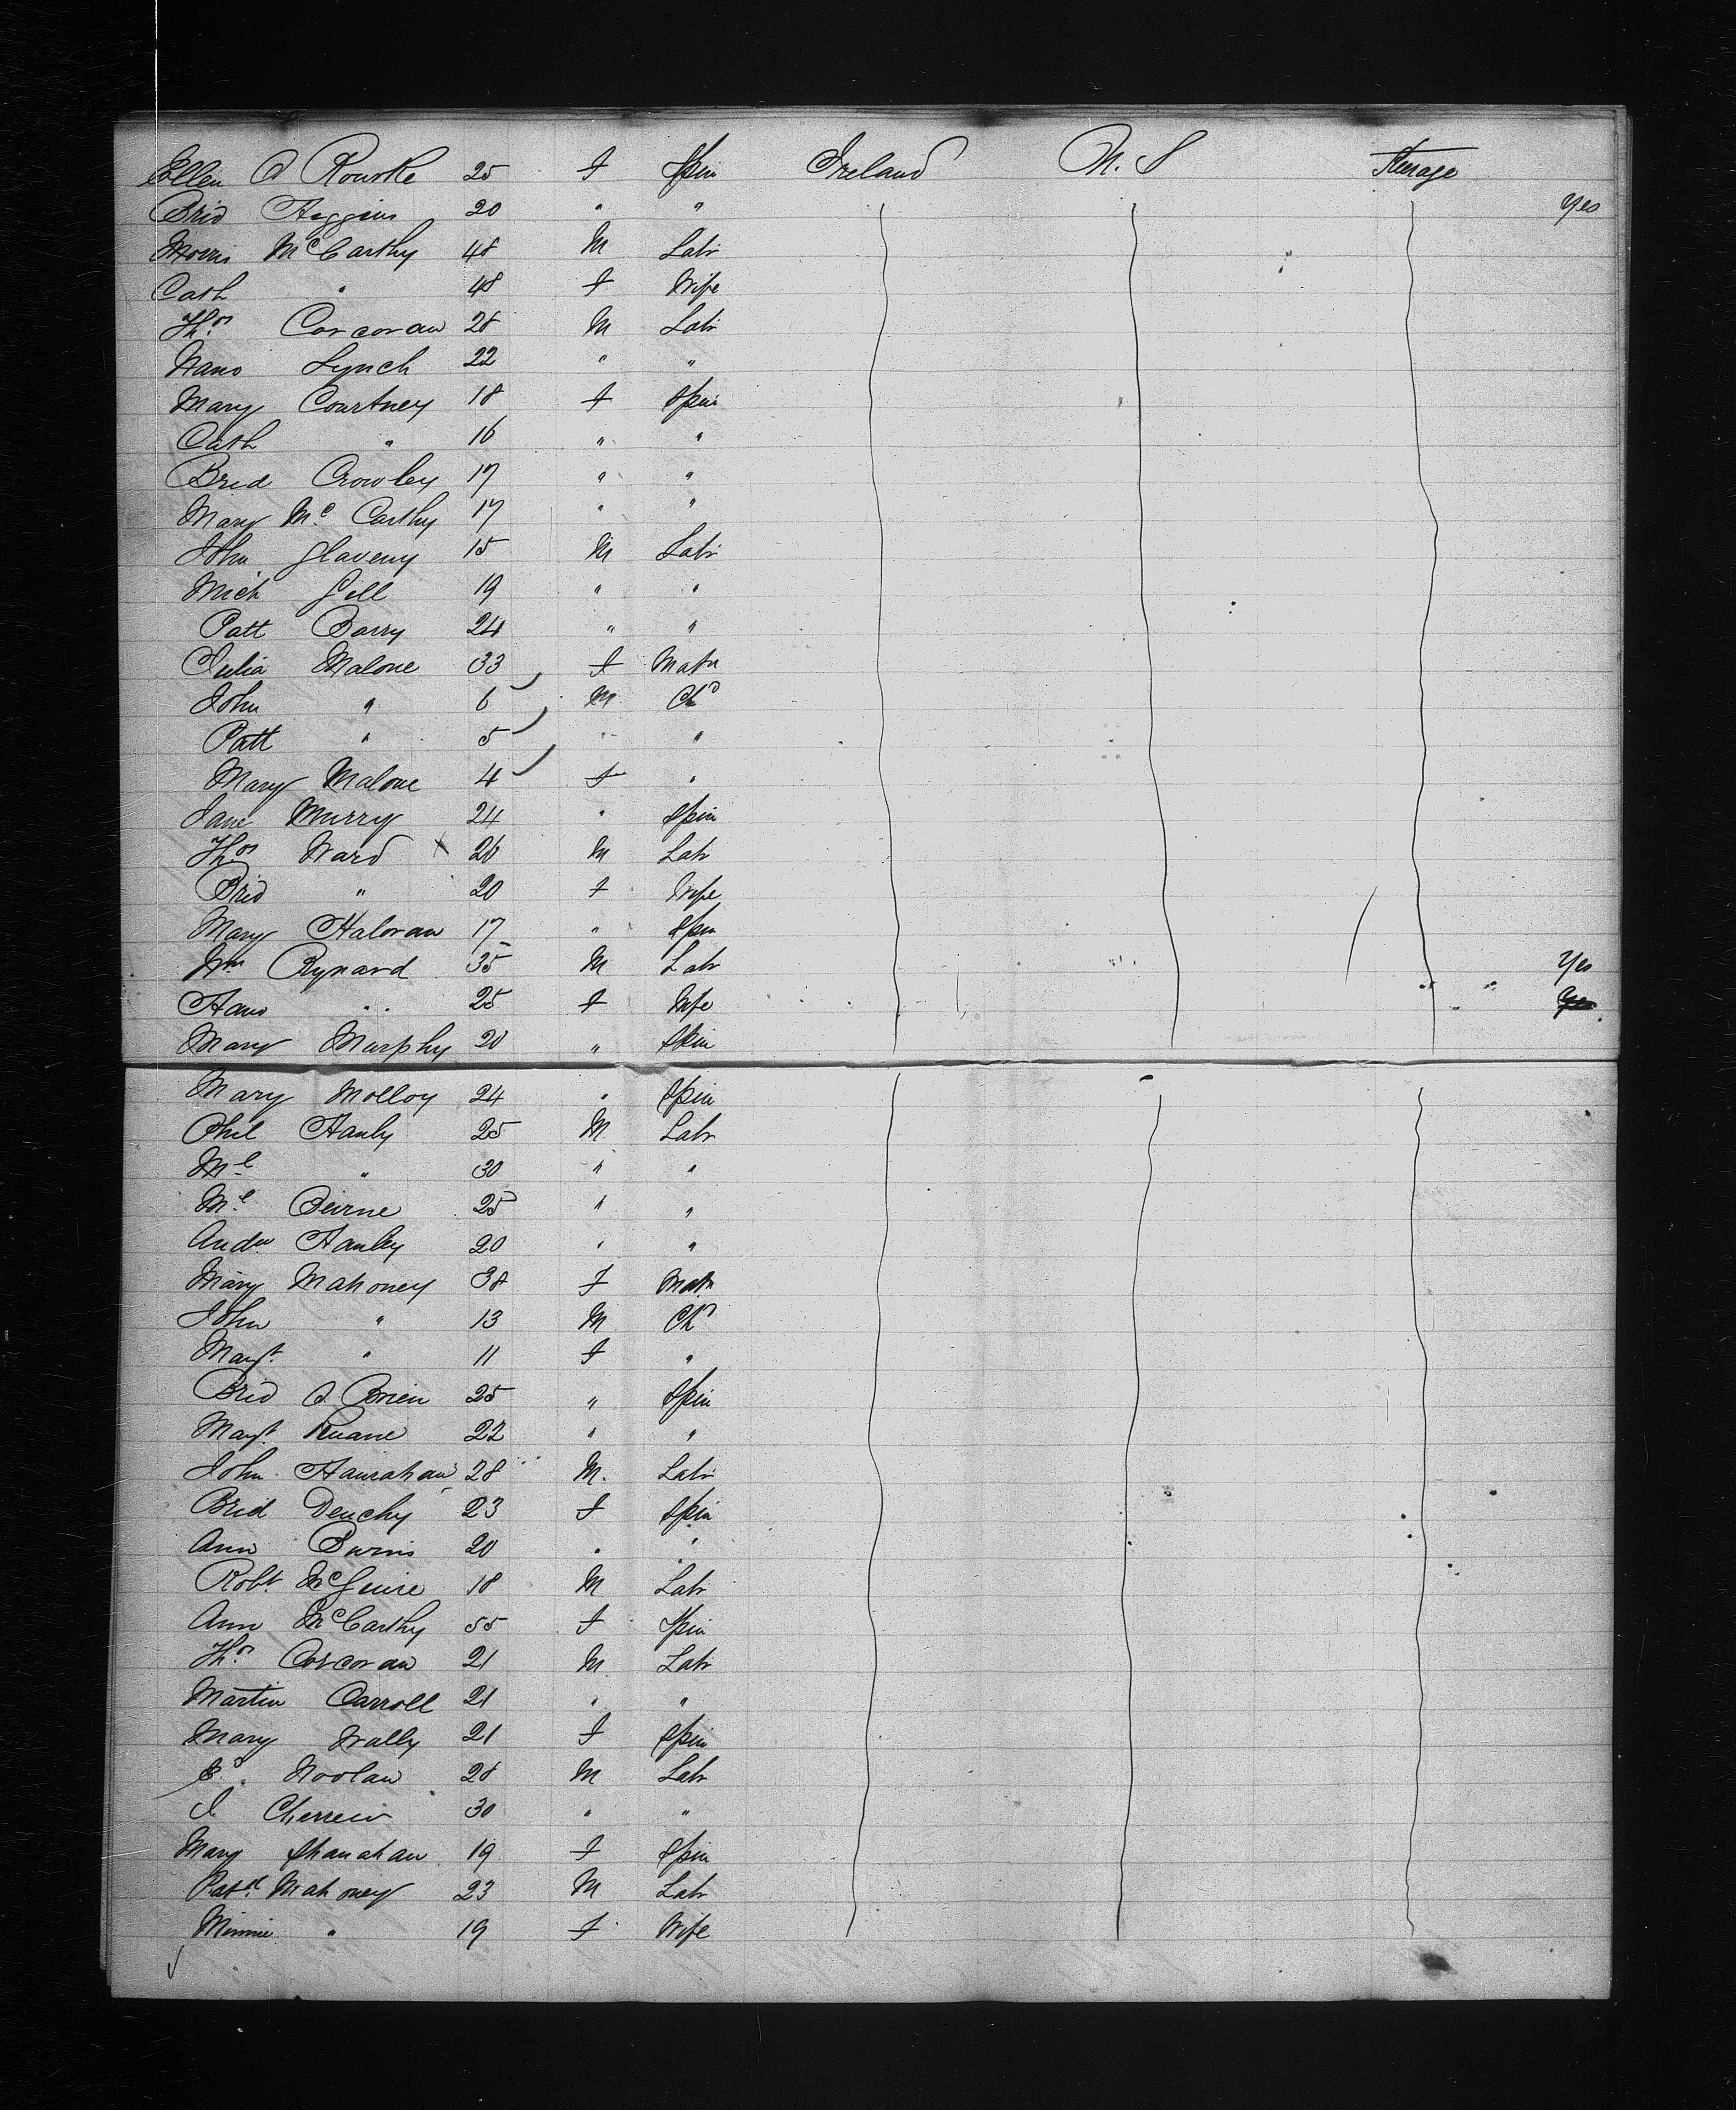 Ellen O Rourke 25 f Spin Ireland U. S Steerage
Brid Higgins 20 " " Yes
Morris McCarthy 48 M Labr
Cath " 48 f Wife
Thos Corcoran 28 M Labr
Nano Lynch 22 " "
Mary Courtney 18 f Spin
Cath " 16 " "
Brid Crowley 17 " "
Mary Mc Carthy 17 " "
John Glaveny 15 M Labr
Mich Gill 19 " "
Patt Barry 24 " "
Julia Malone 33 f Matn
John " 6 M Chd
Patt " 5 " "
Mary Malone 4 f "
Jane Murry 24 " Spin
Thos Ward x 26 M Labr
Brid " 20 f Wife
Mary Haloran 17 " Spin
Wm Rynard 35 M Labr Yes
Hano " 25 f Wife Yes
Mary Murphy 20 " Spin
Mary Molloy 24 " Spin
Phil Hanly 25 M Labr
Ml " 30 " "
Ml Beirne 25 " "
Andw Hanley 20 " "
Mary Mahoney 38 f Matn
John " 13 M Chd
Margt " 11 f "
Brid O Brien 25 " Spin
Margt Ruane 22 " "
John Hanrahan 28 M. Labr
Brid Deuchy 23 f Spin
Ann Burns 20 " "
Robt McGuire 18 M Labr
Ann McCarthy 55 f Spin
Thos Corcoran 21 M Labr
Martin Carroll 21 " "
Mary Wally 21 f Spin
Noolan 28 M Labr
J 30 " "
Mary Shanahan 19 f Spin
Patk Mahoney 23 M Labr
Minnie " 19 f Wife